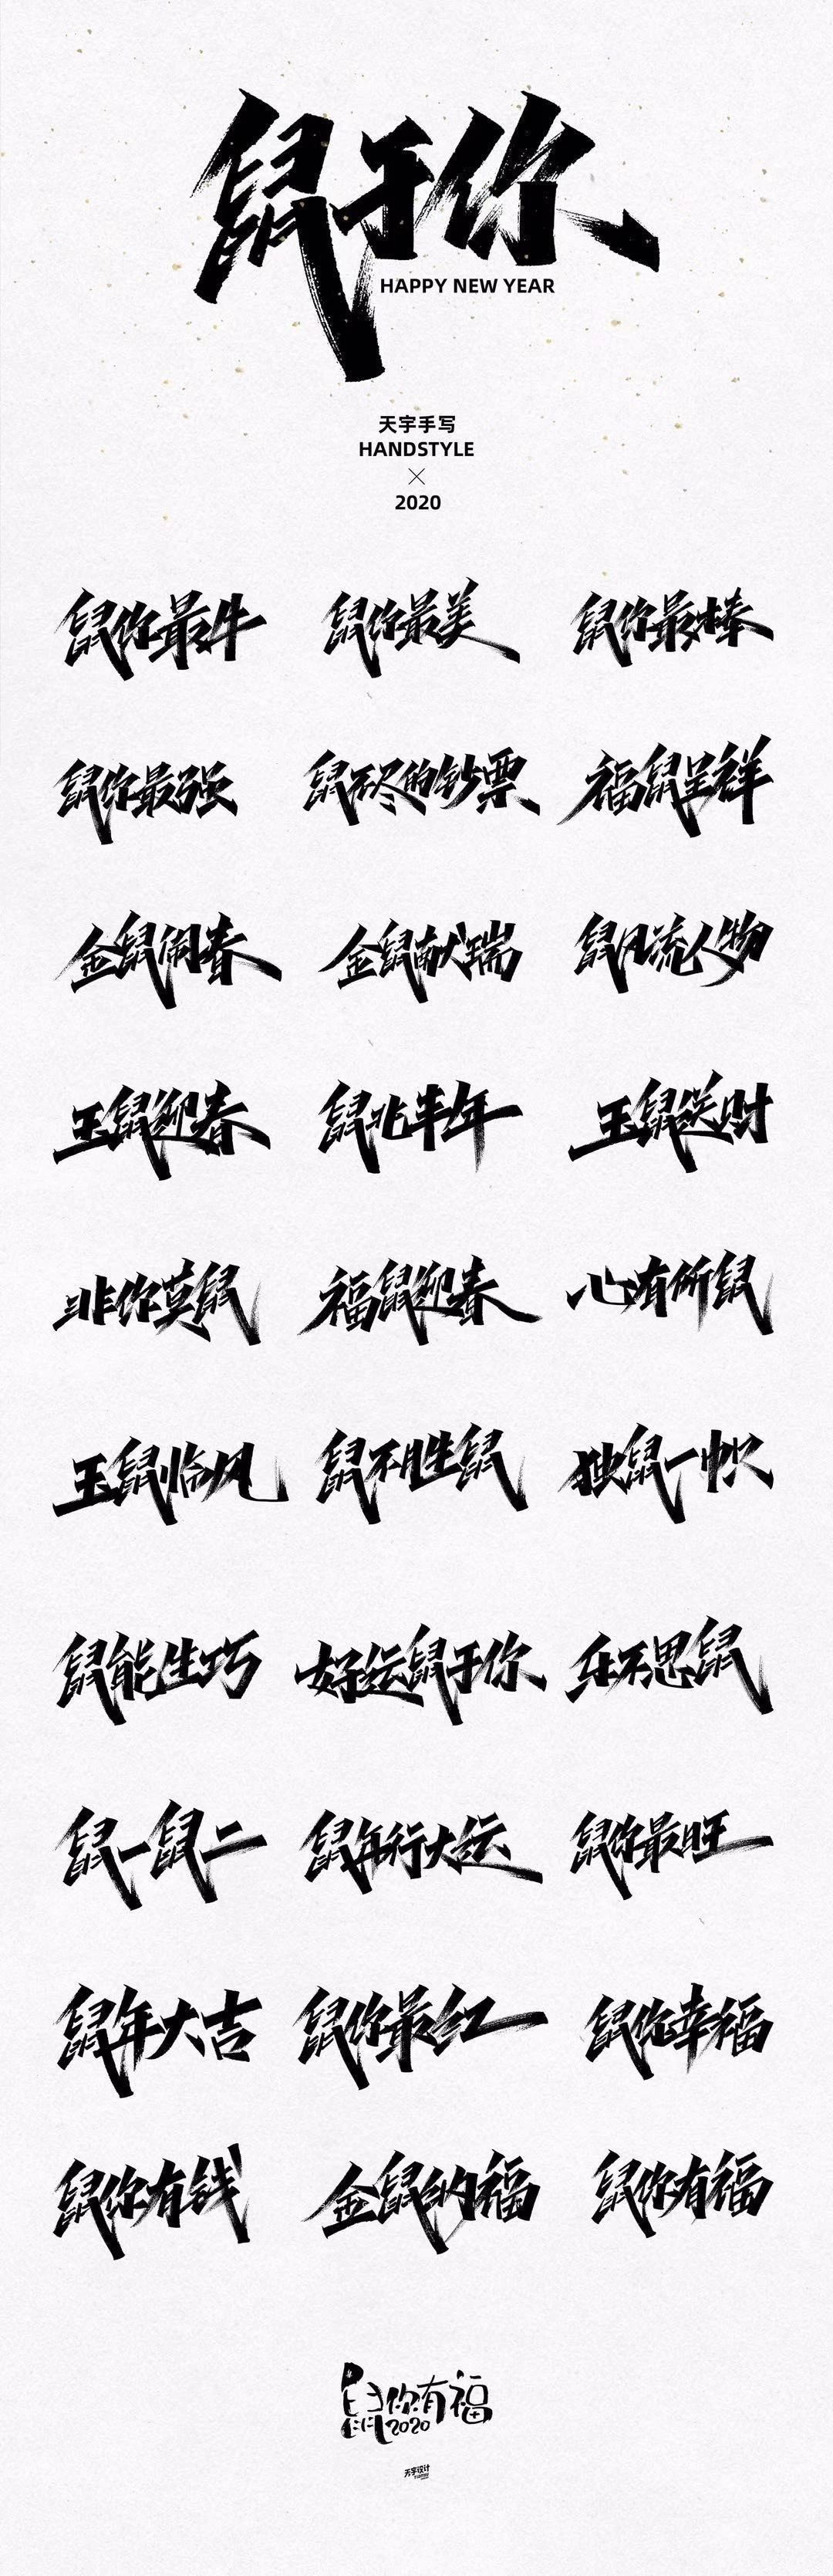 鼠于你
HAPPY NEW YEAR
天宇手写
HANDSTYLE
×
2020
鼠你最牛 鼠你最美 鼠你最棒
鼠你最强 鼠不尽的钞票 福鼠呈祥
金鼠闹春 金鼠献瑞 鼠风流人物
玉鼠迎春 鼠兆丰年 玉鼠送财
非你莫鼠 福鼠迎春 心有所鼠
玉鼠临风 鼠不胜鼠 独鼠一帜
鼠能生巧 好运鼠于你 乐不思鼠
鼠一鼠二 鼠年行大运 鼠你最旺
鼠年大吉 鼠你最红 鼠你幸福
鼠你有钱 金鼠纳福 鼠你有福
鼠你有福
2020
天宇设计